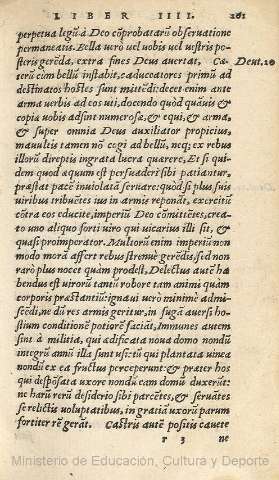 LIBER IIII. 261
perpetua legũ à Deo cõprobatarũ obseruatione
permaneatis. Bella verò vel vobis vel vestris po-
steris gerẽda, extra fines Deus auertat. Cæ-
Deut. 20
terũ cùm bellũ instabit, caduceatores primũ ad
destinatos hostes sunt mittẽdi: decet enim ante
arma verbis ad eos uti, docendo quòd quãuis &
copia vobis adsint numerosæ, & equi, & arma,
& super omnia Deus auxiliator propicius,
mauultis tamen nõ cogi ad bellũ, neq; ex rebus
illorũ direptis ingrata lucra quærere. Et si qui-
dem quod æquum est persuaderi sibi patiantur,
præstat pacẽ inuiolatã seruare: quòd si plus suis
viribus tribuẽtes ius in armis reponãt, exercitũ
cõtra eos educite, imperiũ Deo cõmittẽtes, crea-
to uno aliquo forti viro qui vicarius illi sit, &
quasi proimperator. Multorũ enim imperiũ non
modò morã affert rebus strenuè gerẽdis, sed non
rarò plus nocet quàm prodest. Delectus autẽ ha-
bendus est virorũ tantũ robore tam animi quàm
corporis præstantiũ: ignaui verò minimè admi-
scẽdi, ne dũ res armis geritur, in fugã auersi ho-
stium conditionẽ potiorẽ faciãt. Immunes autem
sint à militia, qui ædificata noua domo nondũ
integrũ annũ illa sunt vsi: tũ qui plantata vinea
nondũ ex ea fructus perceperunt: & præter hos
qui despõsata vxore nondũ eam domũ duxerũt:
ne harũ rerũ desiderio sibi parcẽtes, & seruãtes
se relictis voluptatibus, in gratiã vxorũ parum
fortiter rẽ gerãt. Castris autẽ positis cauete
r 3 ne
Ministerio de Educación, Cultura y Deporte